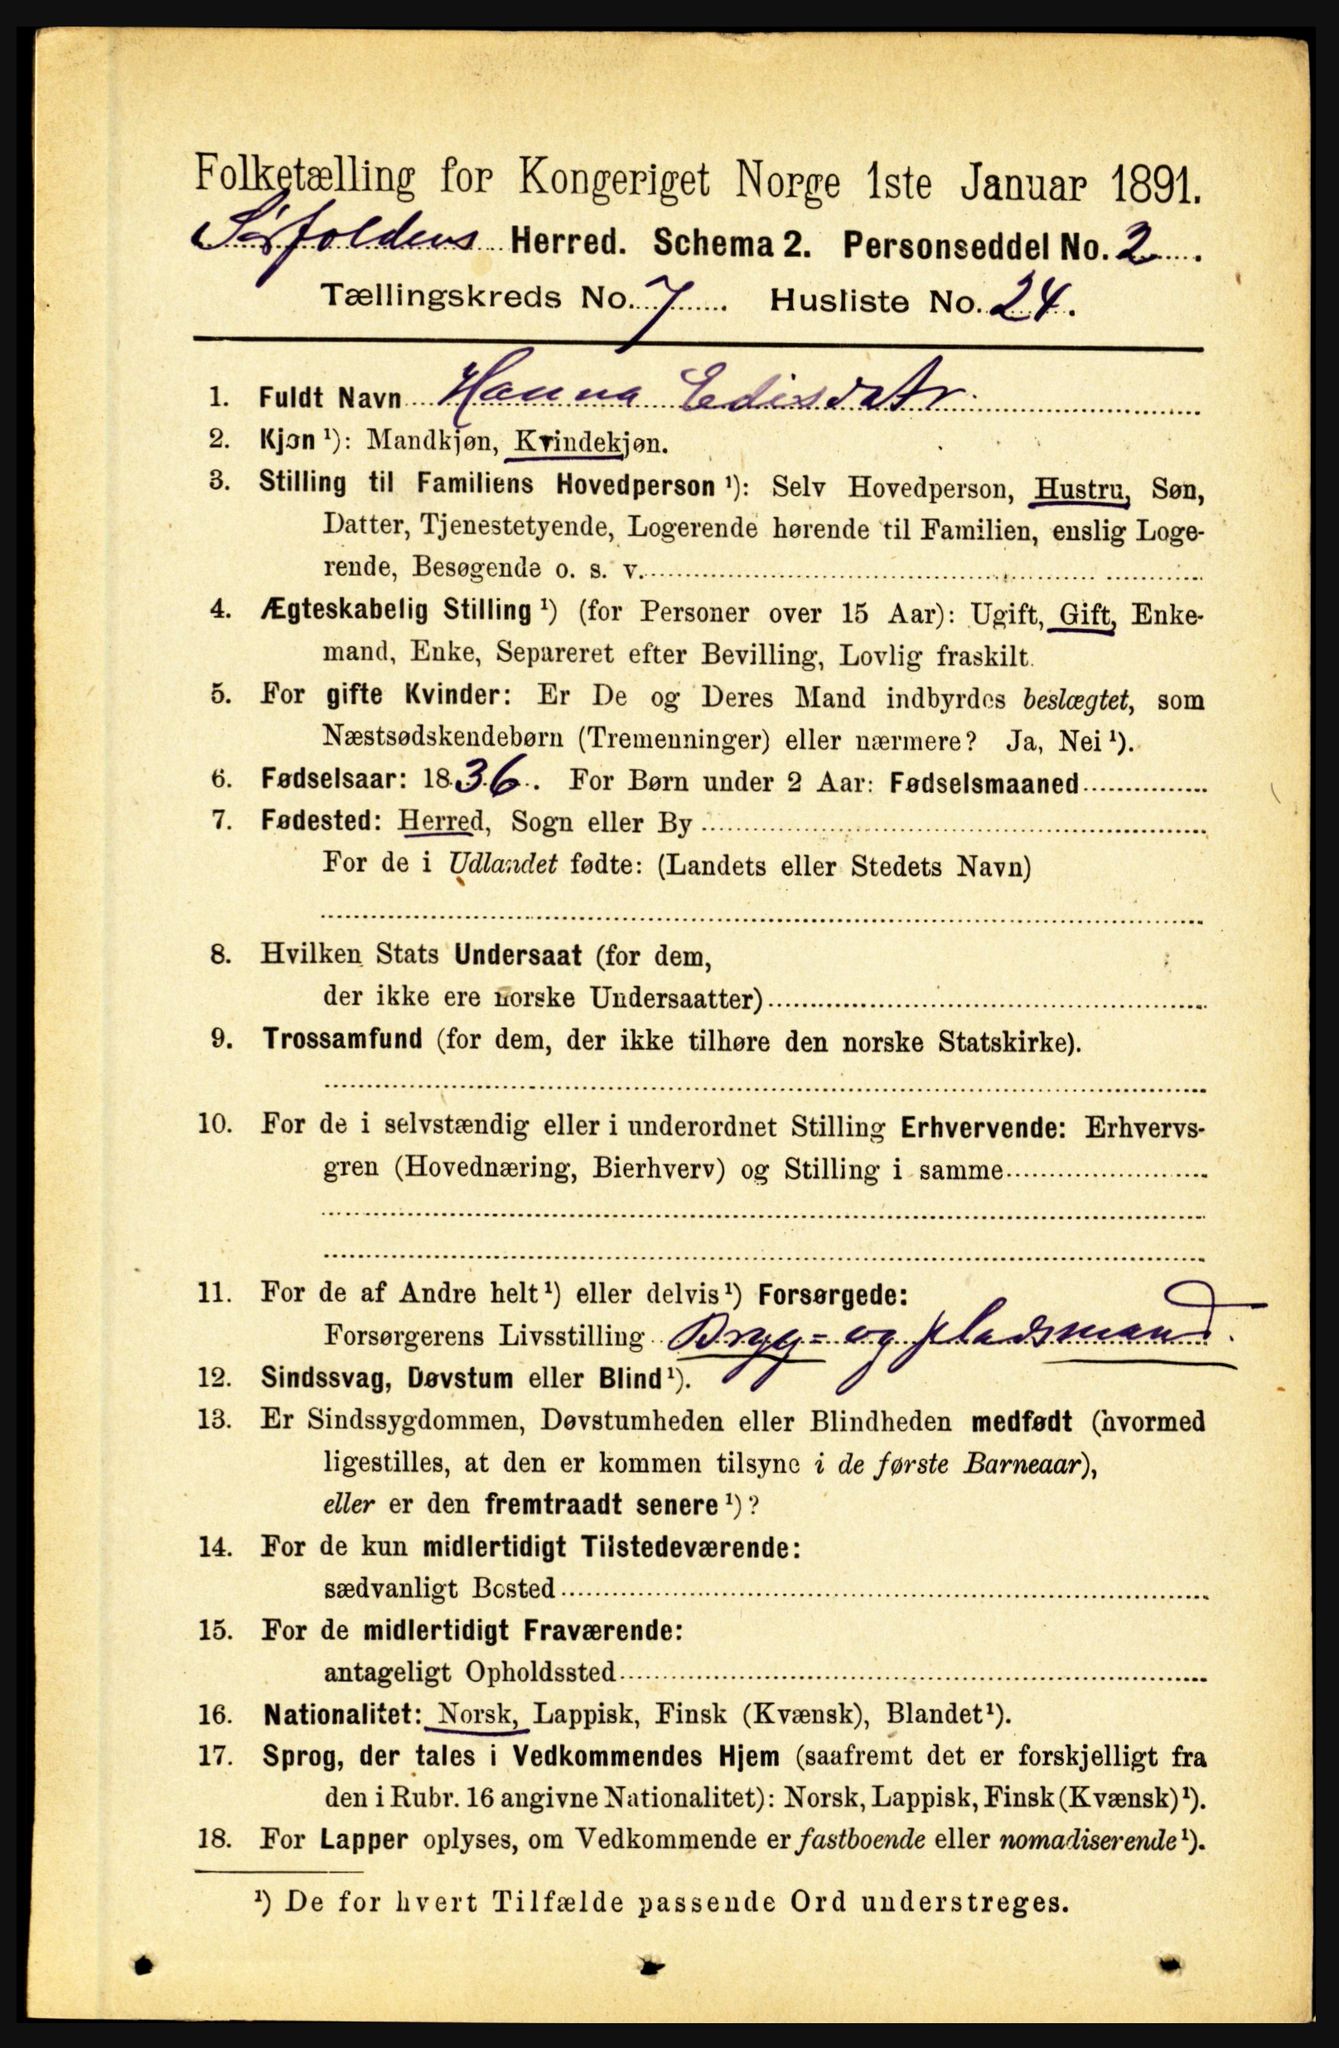 Folketælling for Kongeriget Norge 1ste Januar 1891.
Sørfoldens Herred. Schema 2. Personseddel No. 2.
Tællingskreds No. 7. Husliste No. 24.
1. Fuldt Navn Hanna Edisdatr.
2. Kjøn ¹): Mandkjøn, Kvindekjøn.
3. Stilling til Familiens Hovedperson ¹): Selv Hovedperson, Hustru, Søn,
Datter, Tjenestetyende, Logerende hørende til Familien, enslig Loge-
rende, Besøgende o. s. v.
4. Ægteskabelig Stilling ¹) (for Personer over 15 Aar): Ugift, Gift, Enke-
mand, Enke, Separeret efter Bevilling, Lovlig fraskilt.
5. For gifte Kvinder: Er De og Deres Mand indbyrdes beslægtet, som
Næstsødskendebørn (Tremenninger) eller nærmere? Ja, Nei ¹).
6. Fødselsaar: 1836. For Børn under 2 Aar: Fødselsmaaned
7. Fødested: Herred, Sogn eller By
For de i Udlandet fødte: (Landets eller Stedets Navn)
8. Hvilken Stats Undersaat (for dem,
der ikke ere norske Undersaatter)
9. Trossamfund (for dem, der ikke tilhøre den norske Statskirke).
10. For de i selvstændig eller i underordnet Stilling Erhvervende: Erhvervs-
gren (Hovednæring, Bierhverv) og Stilling i samme
11. For de af Andre helt ¹) eller delvis ¹) Forsørgede:
Forsørgerens Livsstilling Bryg- og pladsmand.
12. Sindssvag, Døvstum eller Blind ¹).
13. Er Sindssygdommen, Døvstumheden eller Blindheden medfødt (hvormed
ligestilles, at den er kommen tilsyne i de første Barneaar),
eller er den fremtraadt senere ¹)?
14. For de kun midlertidigt Tilstedeværende:
sædvanligt Bosted
15. For de midlertidigt Fraværende:
antageligt Opholdssted
16. Nationalitet: Norsk, Lappisk, Finsk (Kvænsk), Blandet ¹).
17. Sprog, der tales i Vedkommendes Hjem (saafremt det er forskjelligt fra
den i Rubr. 16 angivne Nationalitet): Norsk, Lappisk, Finsk (Kvænsk) ¹).
18. For Lapper oplyses, om Vedkommende er fastboende eller nomadiserende ¹).
¹) De for hvert Tilfælde passende Ord understreges.